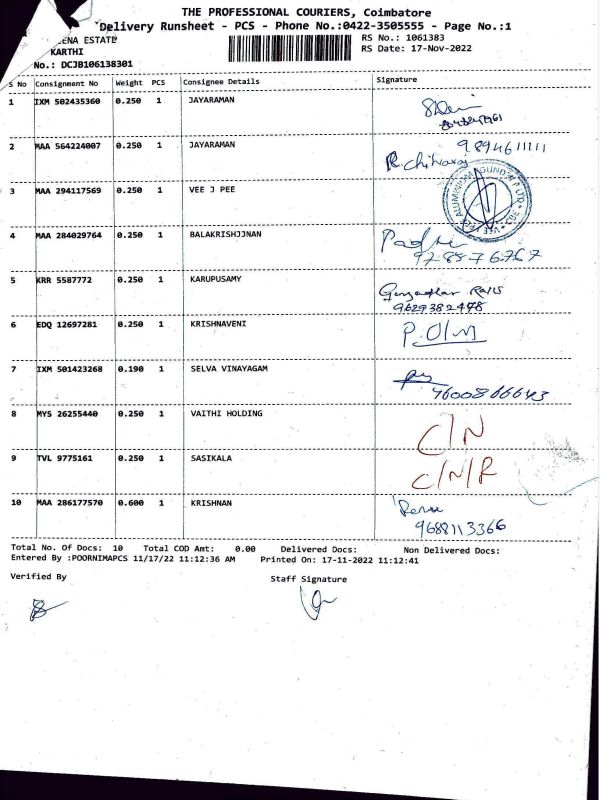 THE PROFESSIONAL COURIERS, Coimbatore
Delivery Runsheet - PCS - Phone No.:0422-3505555 - Page No.:1
ENA ESTATE
RS No.: 1061383
KARTHI
RS Date: 17-Nov-2022
No.: DCJB106138301
S No Consignment No Weight PCS Consignee Details Signature
1 IXM 502435360 0.250 1 JAYARAMAN
2 MAA 564224007 0.250 1 JAYARAMAN 9894611111
R. Chitvaraj
3 MAA 294117569 0.250 1 VEE J PEE
4 MAA 284029764 0.250 1 BALAKRISHJJNAN
9788976767
5 KRR 5587772 0.250 1 KARUPUSAMY
9629382478
6 EDQ 12697281 0.250 1 KRISHNAVENI
7 IXM 501423268 0.190 1 SELVA VINAYAGAM
8 MYS 26255440 0.250 1 VAITHI HOLDING C/N
9 TVL 9775161 0.250 1 SASIKALA C/N/R
10 MAA 286177570 0.600 1 KRISHNAN
9688113366
Total No. Of Docs: 10 Total COD Amt: 0.00 Delivered Docs: Non Delivered Docs:
Entered By :POORNIMAPCS 11/17/22 11:12:36 AM Printed On: 17-11-2022 11:12:41
Verified By Staff Signature